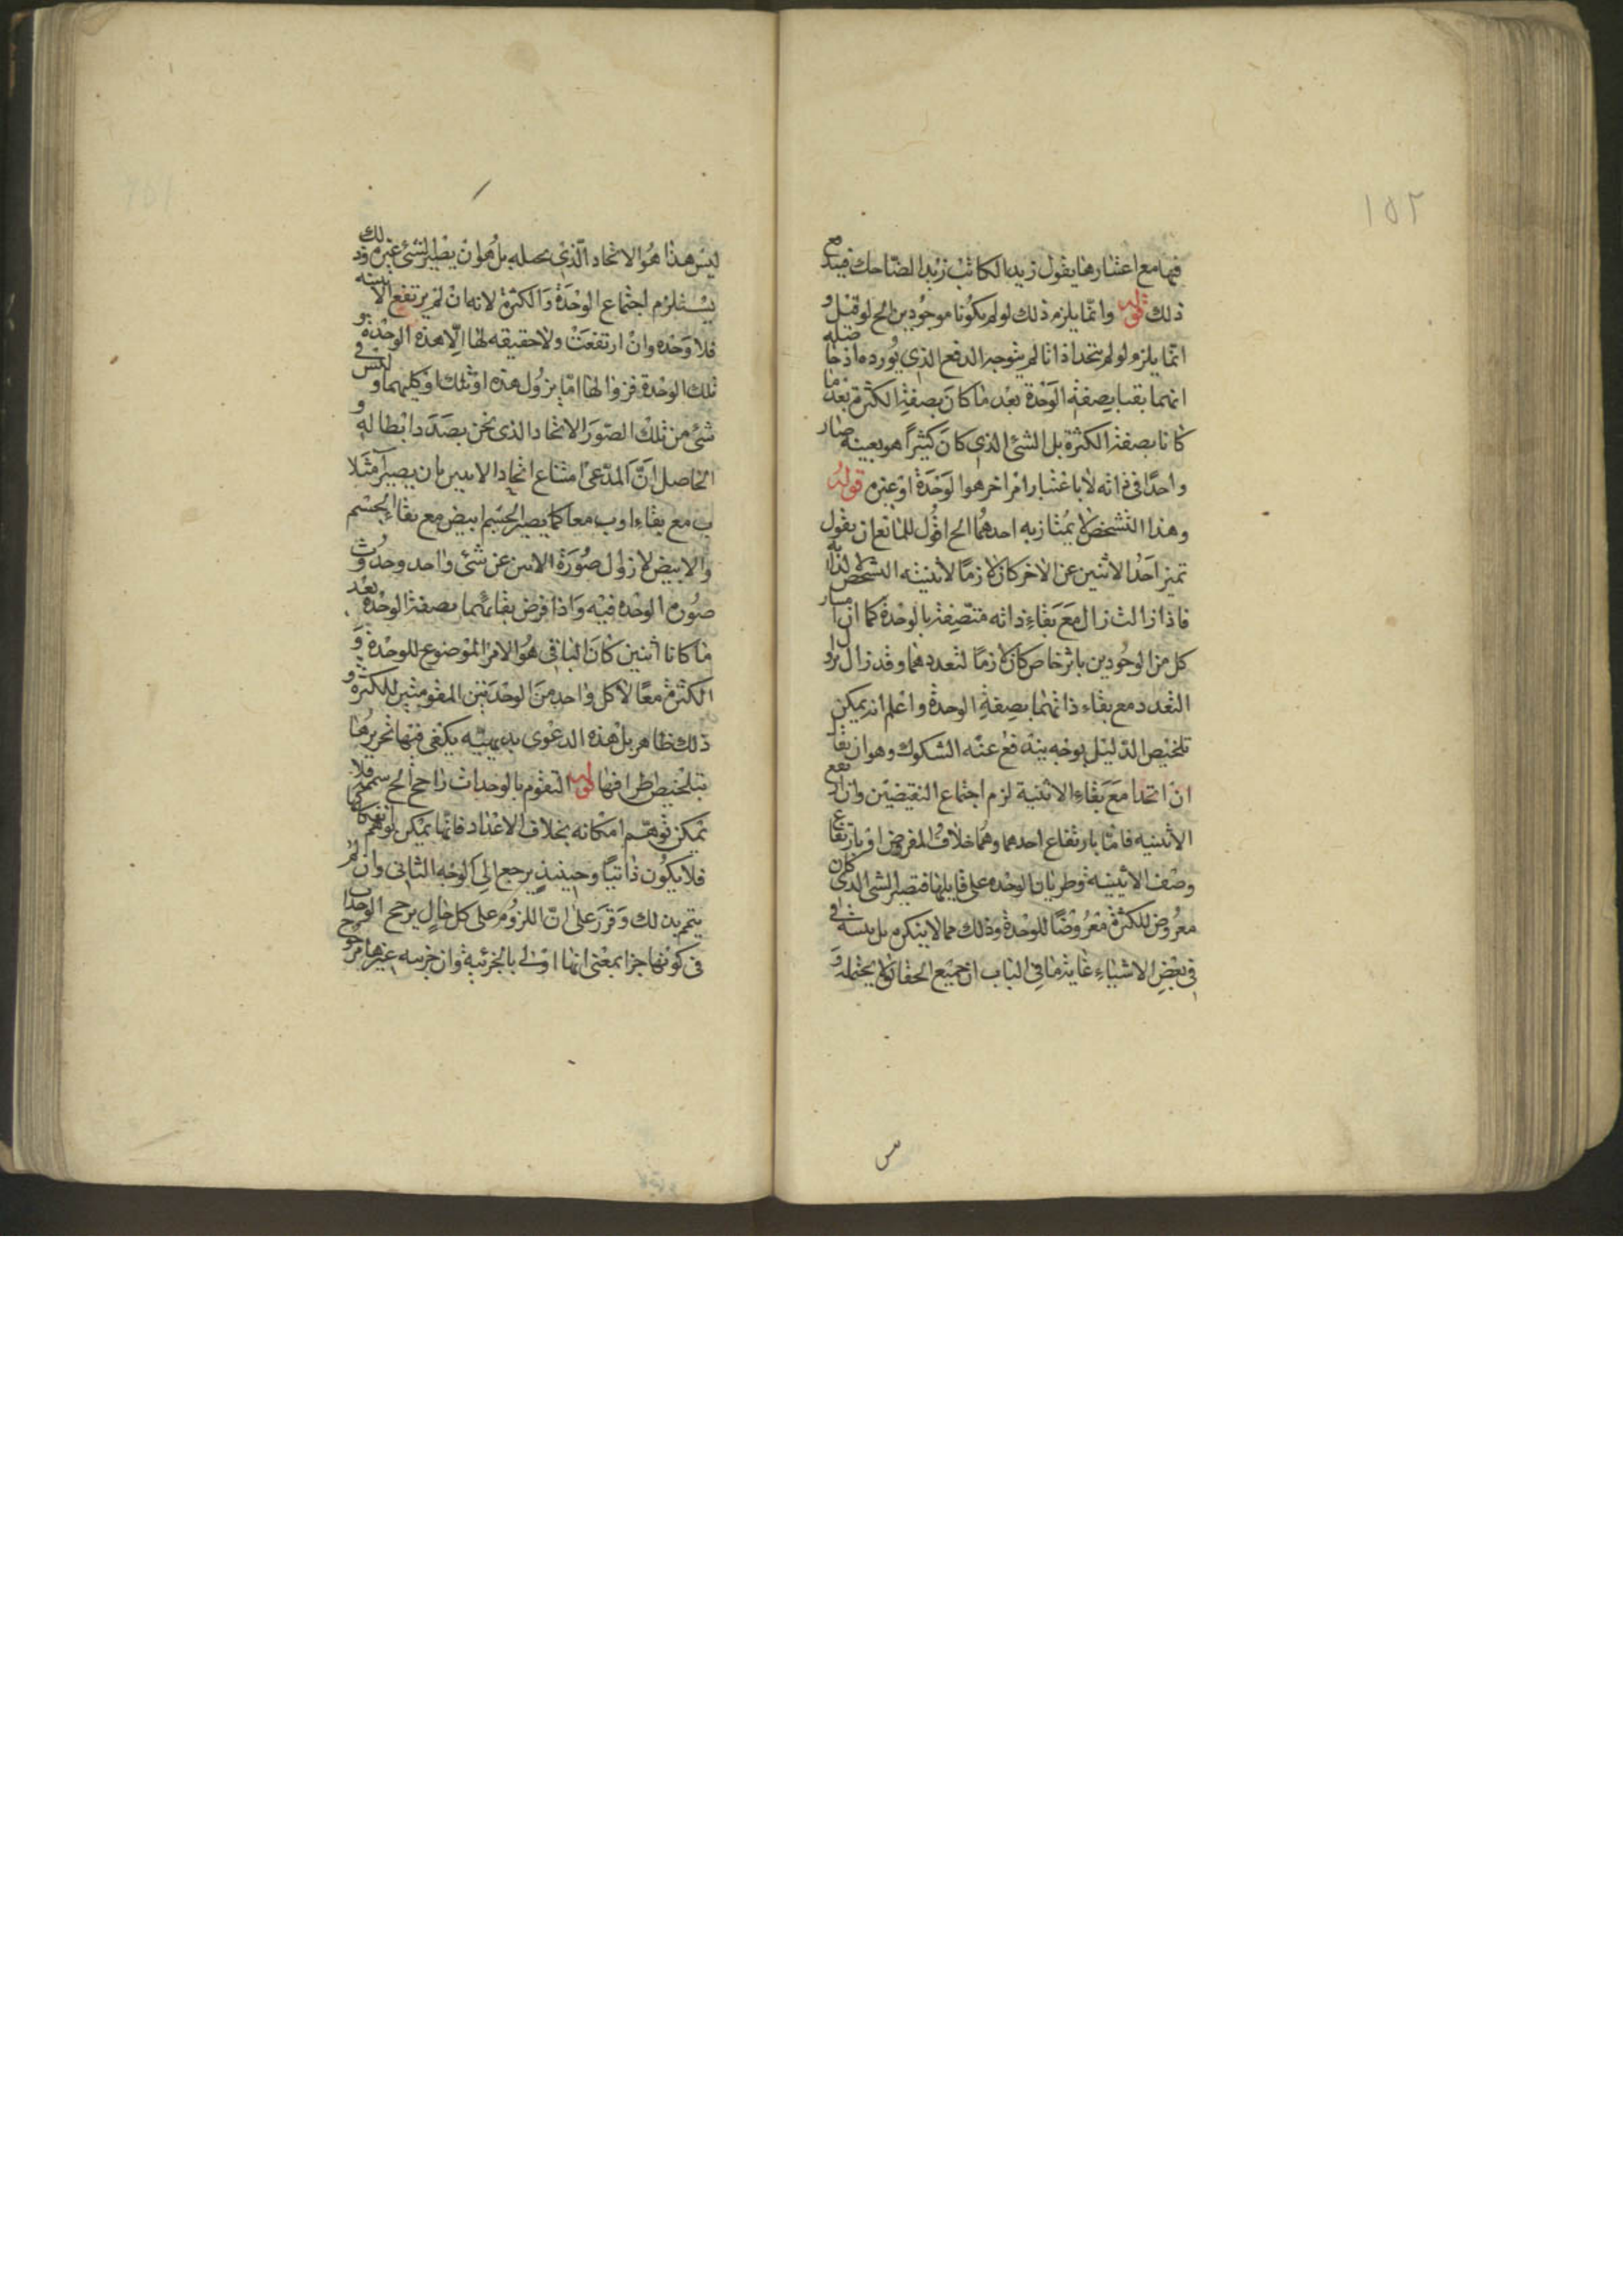 ١٥٢
فيها مع اعتبارها يقول زيد الكاتب زيد الضاحك فيتد مع
ذلك قوله وانما يلزم ذلك لو لم يكونا موجودين الخ لو قيل و
انما يلزم لو لم يتحدا ذاتا لم يتوجه الدفع الذي يورده اذ حاصله
انهما بقيا بصفة الوحدة بعد ما كان بصفة الكثرة بعد ما
كانا بصفة الكثرة بل الشئ الذي كان كثيرا هو بعينه صار
واحدا في ذاته لا باعتبار امر اخر هو الوحدة او غيره قوله
وهذا التشخص لا يمتاز به احدهما الخ اقول للمانع ان يقول
تميز احد الاثنين عن الاخر كان لازما لاثنينية التشخص
فاذا زالت زال مع بقاء ذاته متصفة بالوحدة كما ان
كل من الوجودين باثر خاص كان لازما لتعددهما وقد زال
التعدد مع بقاء ذاتهما بصفة الوحدة واعلم انه يمكن
تلخيص الدليل بوجه يندفع عنه الشكوك وهو ان يقال
ان اتحدا مع بقاء الاثنينية لزم اجتماع النقيضين وان ارتفع
الاثنينيه فاما بارتفاع احدهما وهما خلاف المفروض او بارتفاع
وصف الاثنينيه وطريان الوحده على قابلها فتصير الشئ الذي كان
معروض للكثرة معروضا للوحدة وذلك مما لا ينكره بل يثبته
في بعض الاشياء غاية ما في الباب ان جميع الحقائق لا يحتمله و
ليس هذا هو الاتحاد الذي يحيله بل هو ان يصير الشئ غيره وذلك
يستلزم اجتماع الوحدة والكثرة لانه ان لم يرتفع الاثنينيه
فلا وحده وان ارتفعت ولا حقيقه لها الا هذه الوحدة و
تلك الوحدة فزوالها اما بزول هذه او تلك او كليهما و ليس في
شئ من تلك الصور الاتحاد الذي نحن بصدد ابطاله و
الحاصل ان المدعى امتناع اتحاد الاثنين بان يصير آ مثلا
ب مع بقاء ا و ب معا كما يصير الجسم ابيض مع بقاء الجسم
والابيض لا زوال صورة الاثنين عن شئ واحد وحدوث
صورة الوحده فيه واذا فرض بقائهما بصفة الوحدة بعد
ما كانا اثنين كان الباقي هو الامر الموضوع للوحدة و
الكثرة معا لا كل واحد من الوحدتين المقومتين للكثرة و
ذلك ظاهر بل هذه الدعوى بديهيته يكفي فيها تحريرها
بتلخيص اطرافها قوله التقوم بالوحدات راجح الخ
يمكن توهم امكانه بخلاف الاعداد فانها يمكن توهم
فلا يكون ذاتيا وحينئذ يرجع الى الوجه الثاني وان لم
يتم بذلك وقرر على ان اللزوم على كل حال يرجح الوحدات
في كونها جزا بمعنى انها اولى بالجزئية وان جزئيه غيرها مرجوح